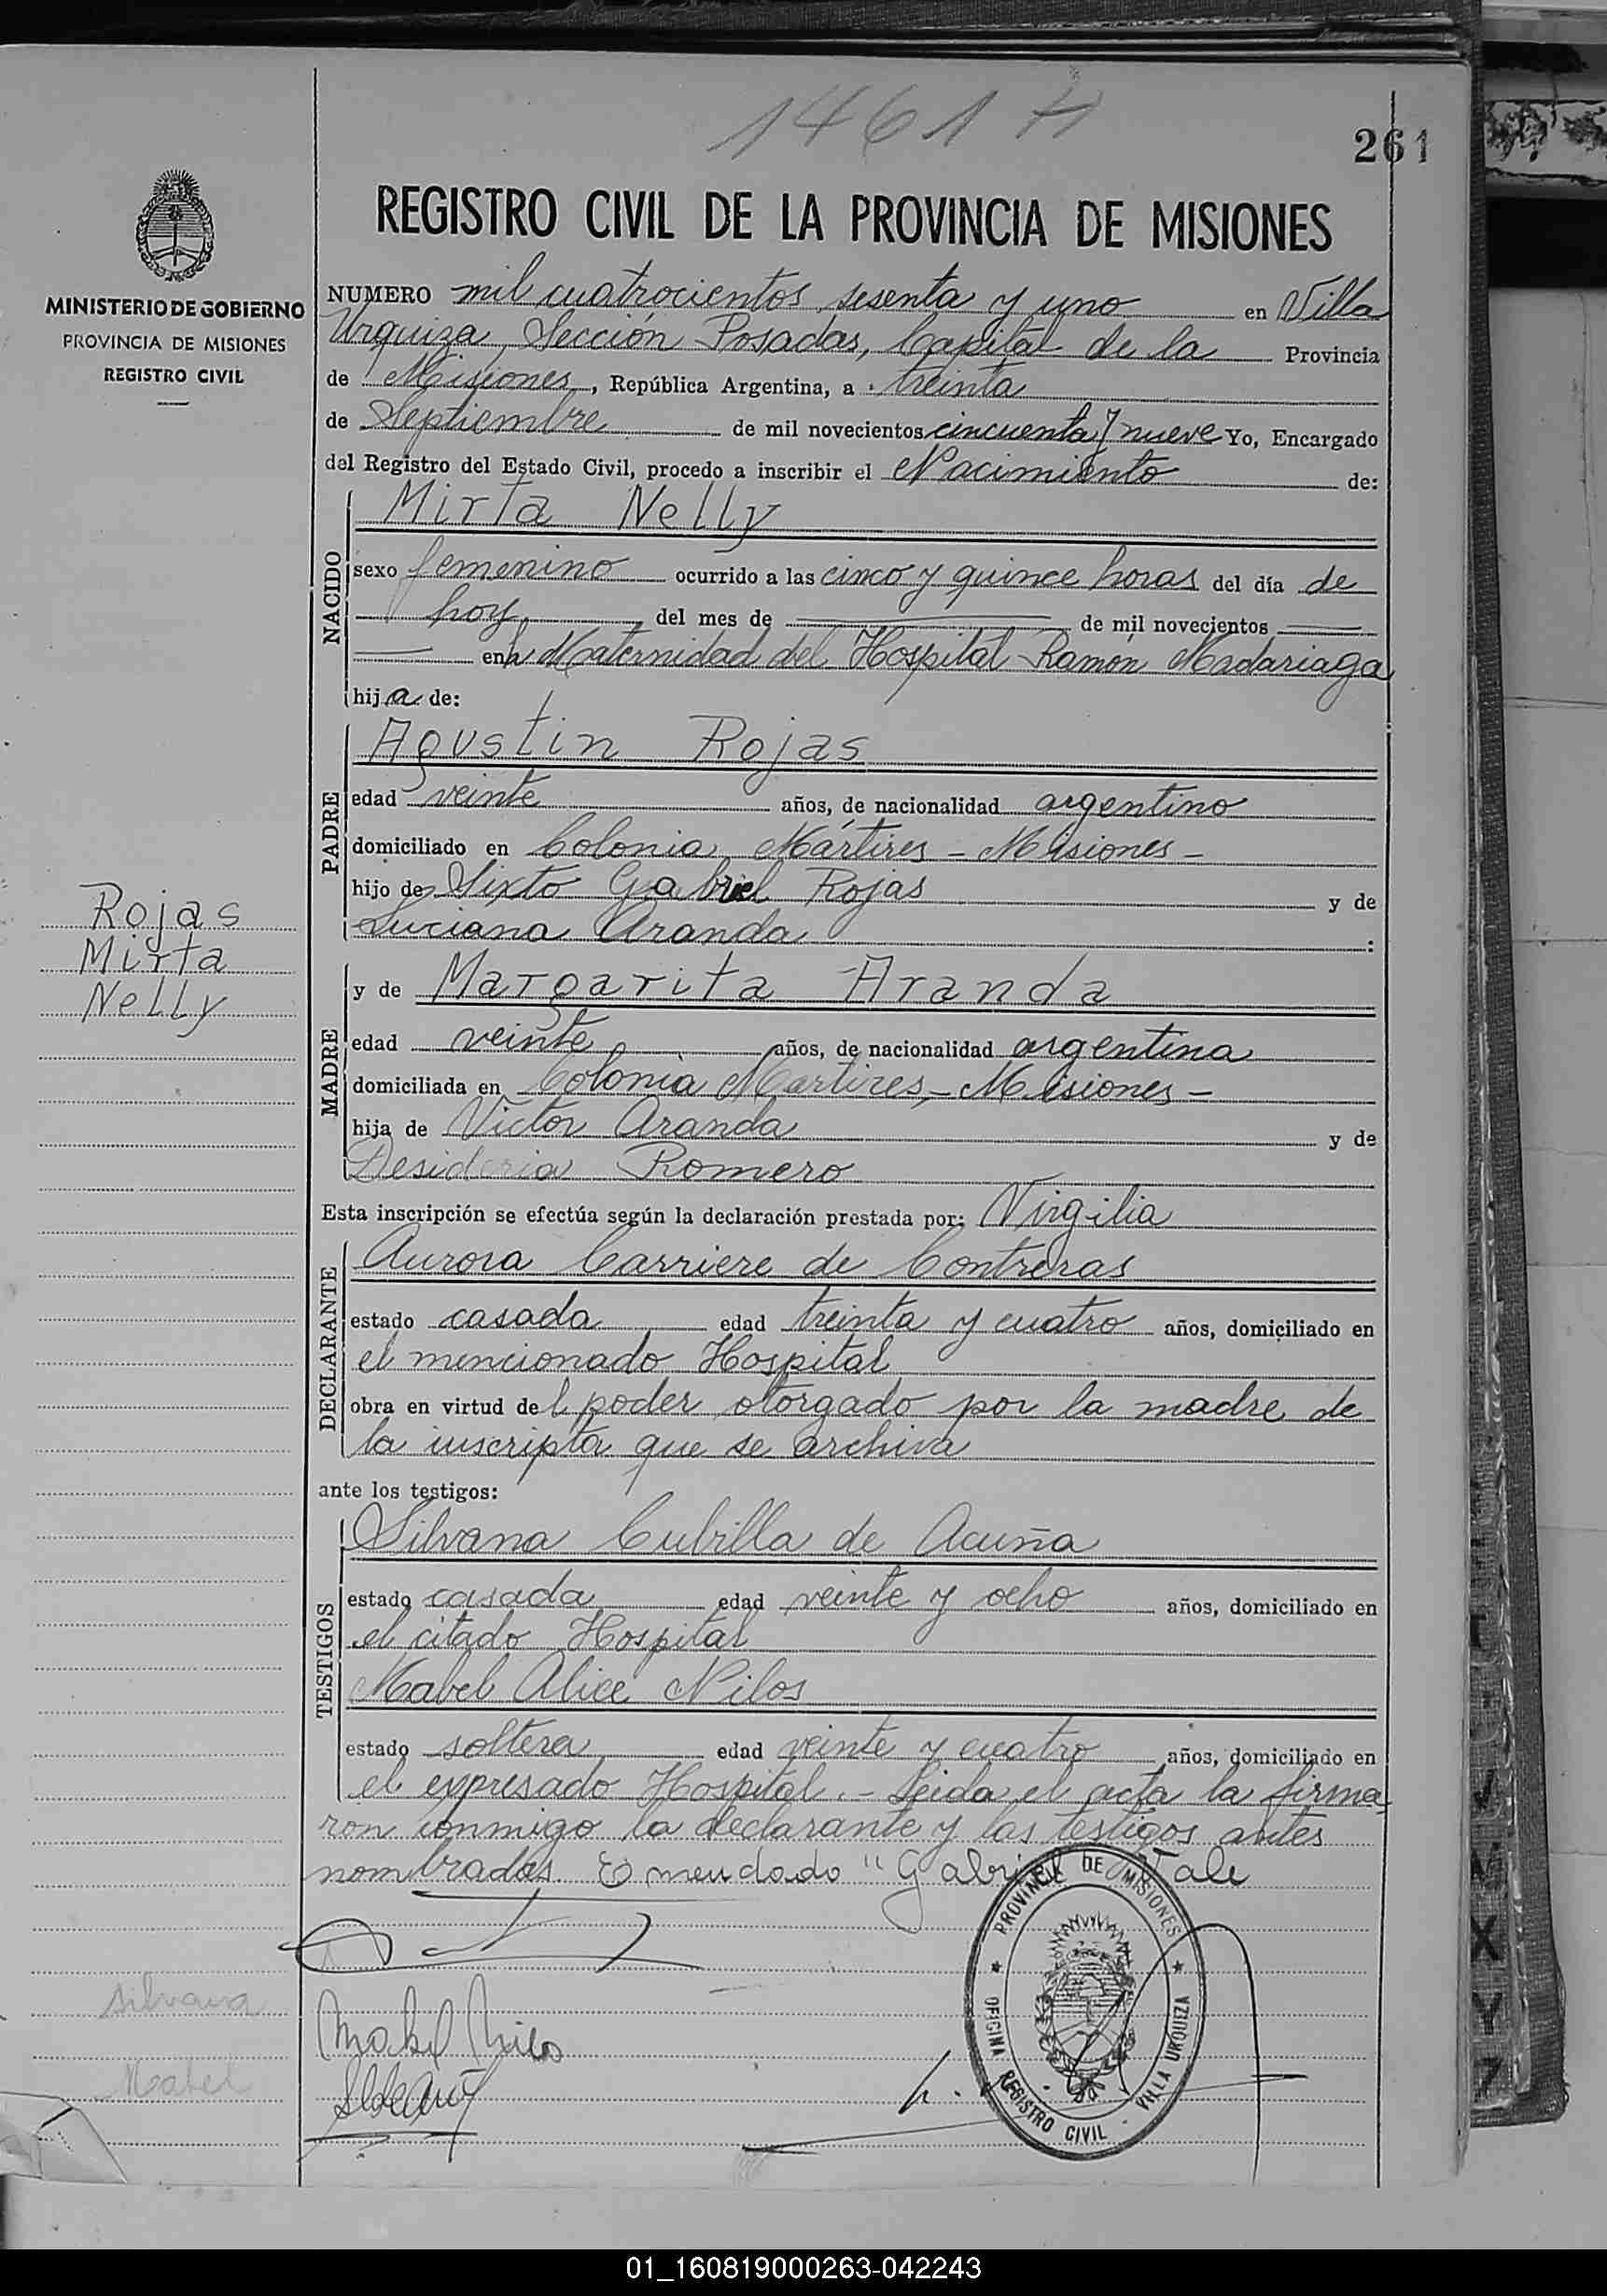 1461 H
261
REGISTRO CIVIL DE LA PROVINCIA DE MISIONES
MINISTERIO DE GOBIERNO
PROVINCIA DE MISIONES
REGISTRO CIVIL
NUMERO mil cuatrocientos sesenta y uno en Villa
Urquiza, Sección Posadas, Capital de la Provincia
de Misiones, República Argentina, a treinta
de Septiembre de mil novecientos cincuenta y nueve Yo, Encargado
del Registro del Estado Civil, procedo a inscribir el Nacimiento de:
NACIDO
Mirta Nelly
sexo femenino ocurrido a las cinco y quince horas del día de
hoy, del mes de de mil novecientos
en la Maternidad del Hospital Ramón Madariaga
hija de:
PADRE
Agustin Rojas
edad veinte años, de nacionalidad argentino
domiciliado en Colonia Mártires - Misiones -
hijo de Sixto Gabriel Rojas y de
Luciana Aranda :
Rojas
Mirta
Nelly
MADRE
y de Margarita Aranda
edad veinte años, de nacionalidad argentina
domiciliada en Colonia Martires - Misiones -
hija de Victor Aranda y de
Desideria Romero
Esta inscripción se efectúa según la declaración prestada por: Virgilia
DECLARANTE
Aurora Carriere de Contreras
estado casada edad treinta y cuatro años, domiciliado en
el mencionado Hospital
obra en virtud del poder otorgado por la madre de
la inscripta que se archiva
ante los testigos:
TESTIGOS
Silvana Cubilla de Acuña
estado casada edad veinte y ocho años, domiciliado en
el citado Hospital
Mabel Alice Nilos
estado soltera edad veinte y cuatro años, domiciliado en
el expresado Hospital. - Leida el acta la firma
ron conmigo la declarante y las testigos antes
nombradas. Emendado "Gabriel" Vale
Silvana
Mabel
Mabel Nilos
PROVINCIA DE MISIONES
OFICINA REGISTRO CIVIL - VILLA URQUIZA
V
M
X
Y
Z
01_160819000263-042243